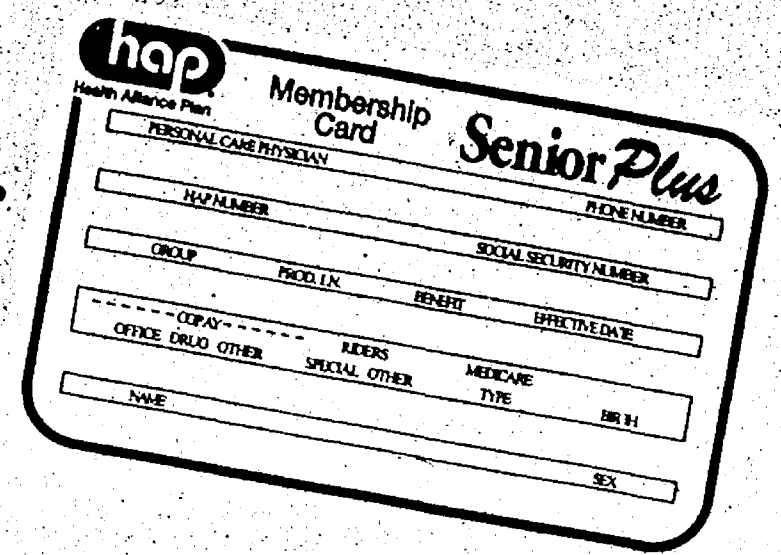 hap
Health Alliance Plan
Membership
Card
Senior Plus
PERSONAL CARE PHYSICIAN PHONE NUMBER
HAP NUMBER SOCIAL SECURITY NUMBER
GROUP PROD. I.N. BENEFIT EFFECTIVE DATE
-----COPAY----- RIDERS MEDICARE
OFFICE DRUG OTHER SPECIAL OTHER TYPE BIRTH
NAME SEX